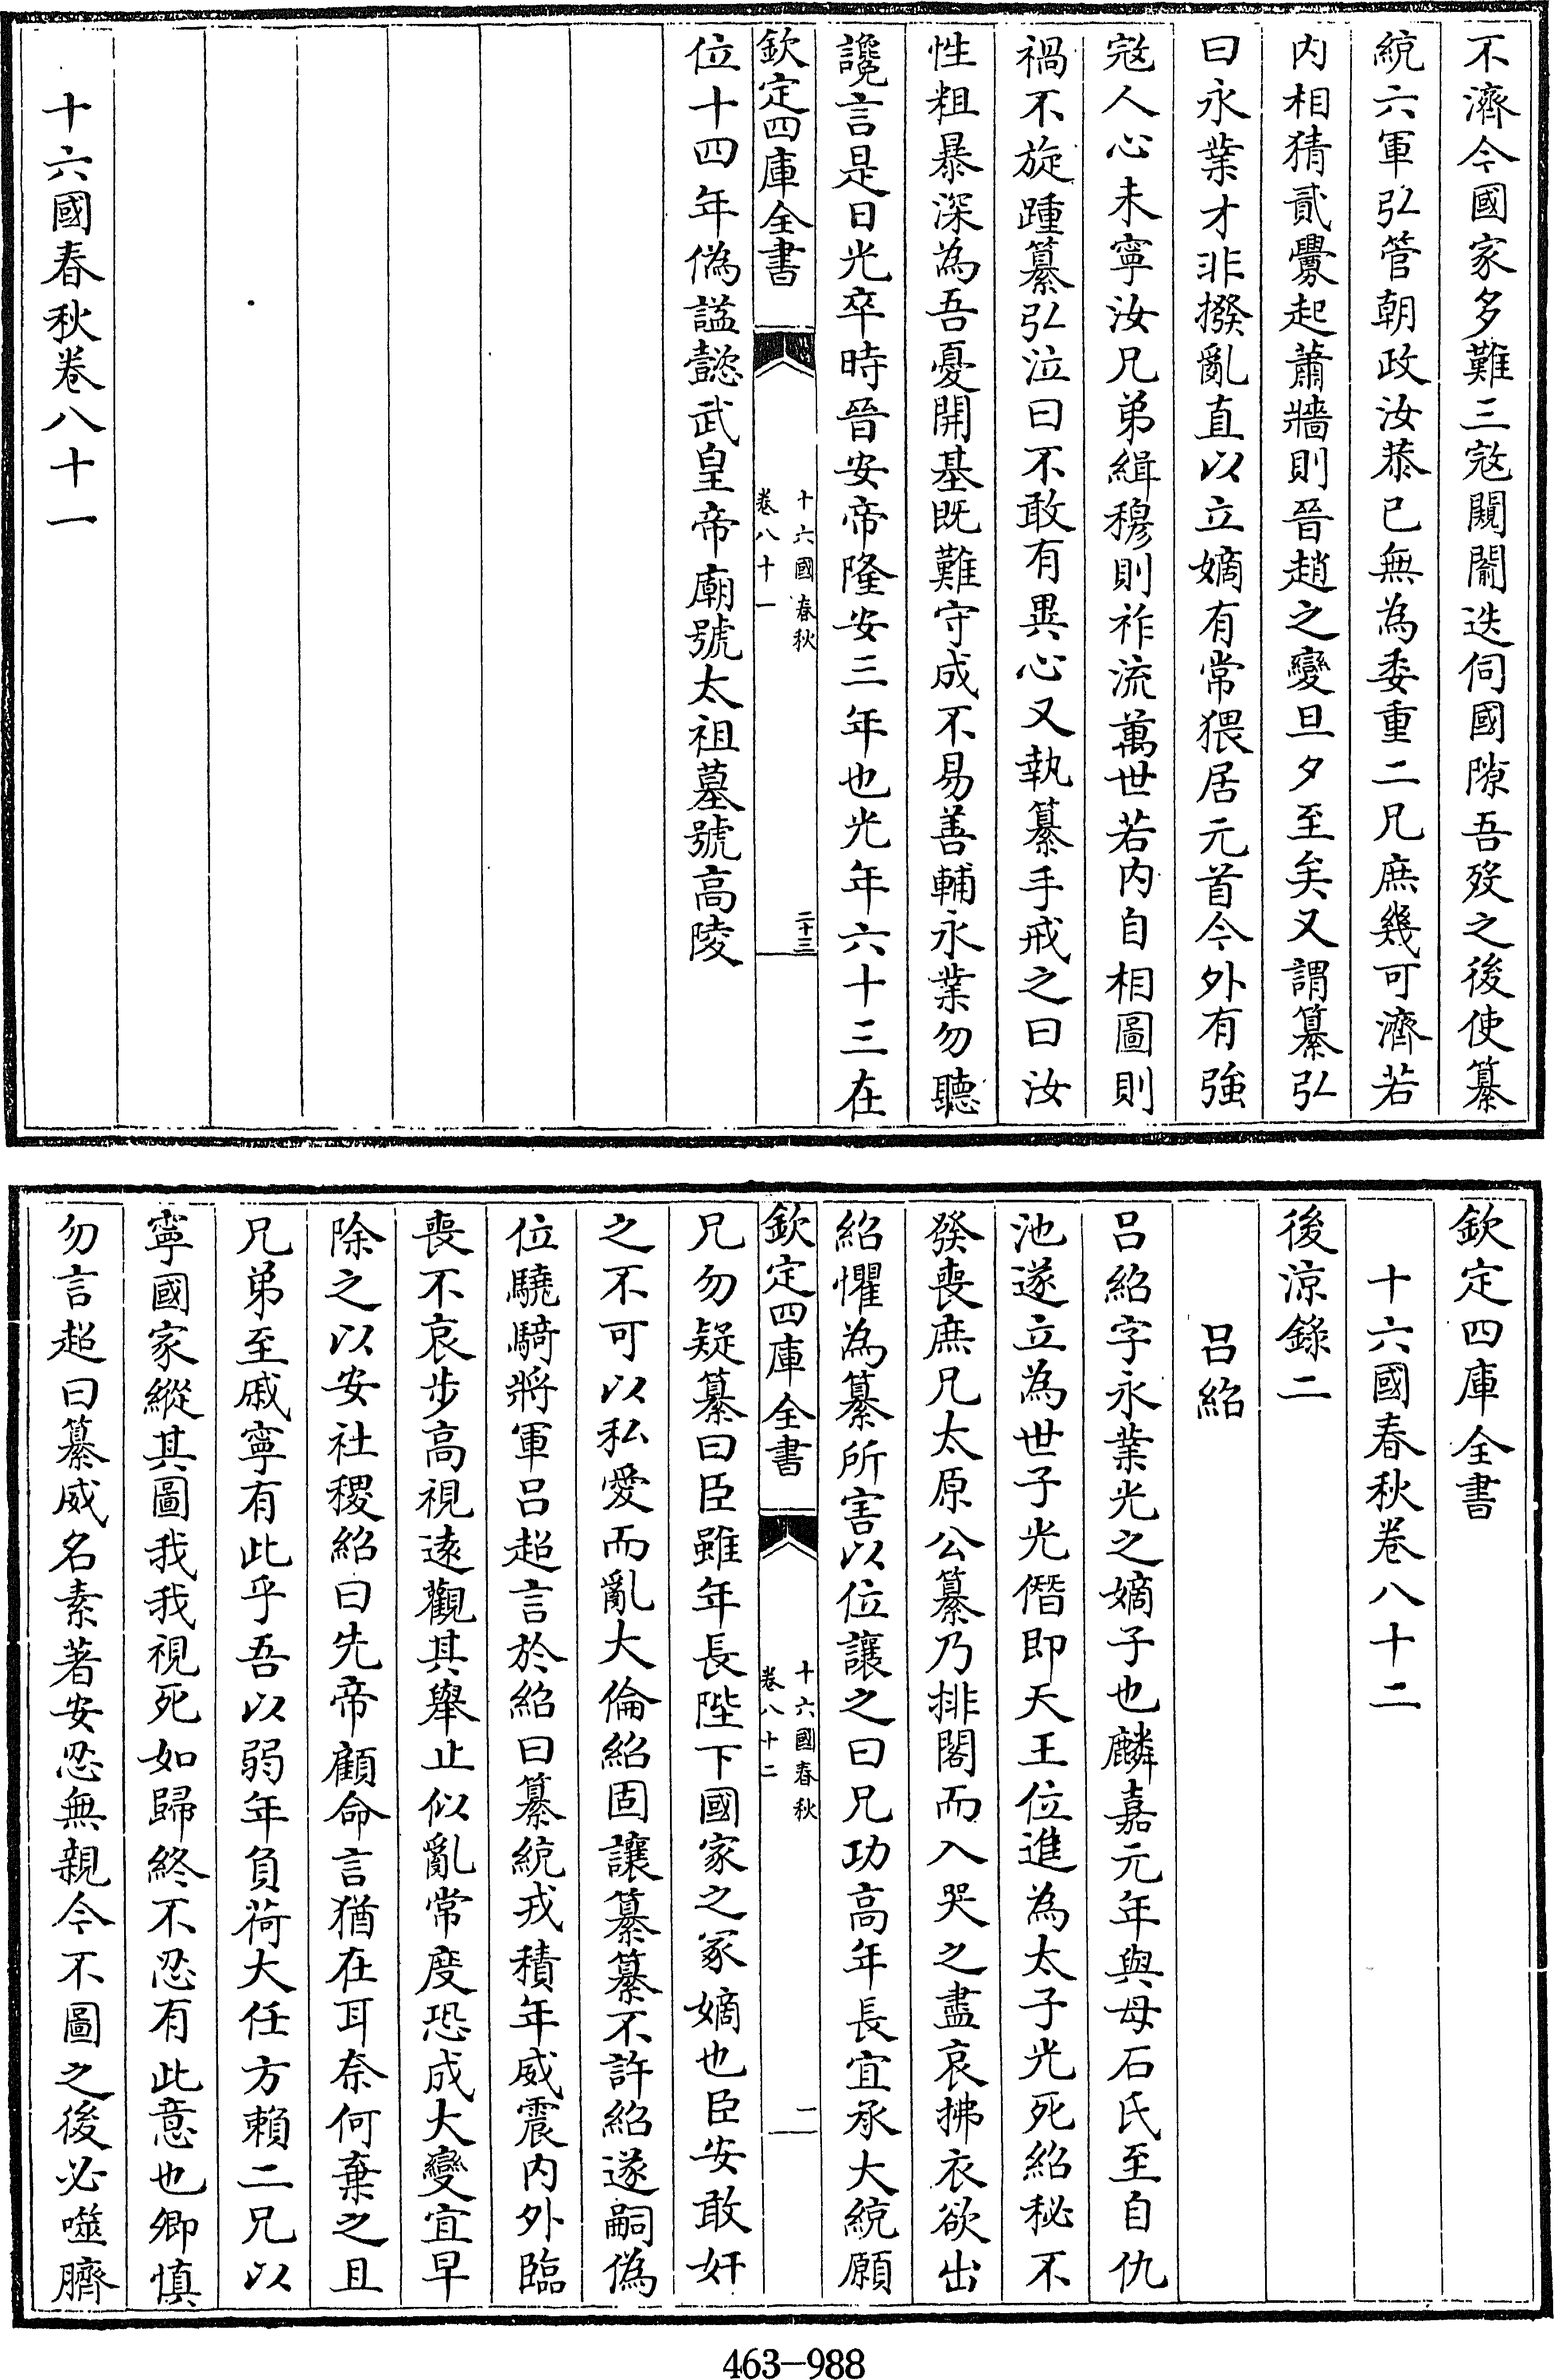 不濟今國家多難三冦闚闚迭伺國隙吾歿之後使纂
統六軍弘管朝政汝恭已無為委重二兄庶幾可濟若
内相猜貳釁起蕭牆則晉趙之變旦夕至矣又謂纂弘
曰永業才非撥亂直以立嫡有常猥居元首今外有強
冦人心未寧汝兄弟緝穆則祚流萬世若内自相圖則
禍不旋踵纂弘泣曰不敢有異心又執纂手戒之曰汝
性粗暴深為吾憂開基既難守成不易善輔永業勿聽
讒言是日光卒時晉安帝隆安三年也光年六十三在
欽定四庫全書
十六國春秋
卷八十一
二十三
位十四年偽諡懿武皇帝廟號太祖墓號高陵
十六國春秋卷八十一
欽定四庫全書
十六國春秋卷八十二
後涼錄二
呂紹
呂紹字永業光之嫡子也麟嘉元年與母石氏至自仇
池遂立為世子光僭即天王位進為太子光死紹秘不
發喪庶兄太原公纂乃排閤而入哭之盡哀拂衣欲出
紹懼為纂所害以位讓之曰兄功高年長宜承大統願
欽定四庫全書
十六國春秋
卷八十二
一
兄勿疑纂曰臣雖年長陛下國家之冢嫡也臣安敢奸
之不可以私愛而亂大倫紹固讓纂纂不許紹遂嗣偽
位驍騎將軍呂超言於紹曰纂統戎積年威震内外臨
喪不哀步高視遠觀其舉止似亂常度恐成大變宜早
除之以安社稷紹曰先帝顧命言猶在耳奈何棄之且
兄弟至戚寧有此乎吾以弱年負荷大任方賴二兄以
寧國家縱其圖我我視死如歸終不忍有此意也卿慎
勿言超曰纂威名素著安忍無親今不圖之後必噬臍
463-988